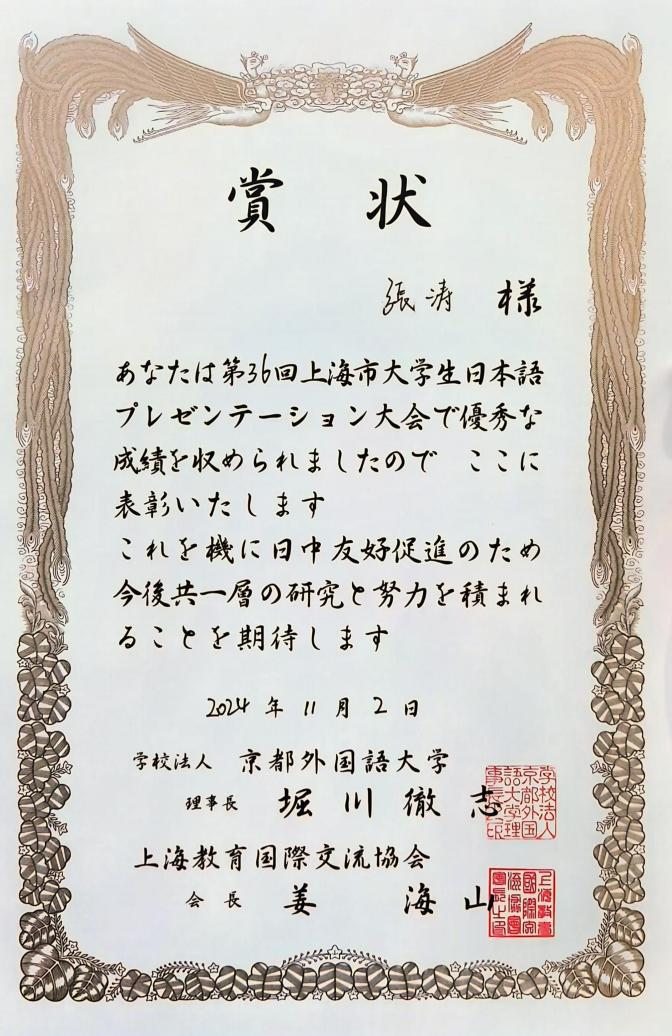 賞状
張涛 様
あなたは第36回上海市大学生日本語
プレゼンテーション大会で優秀な
成績を収められましたので ここに
表彰いたします
これを機に日中友好促進のため
今後共一層の研究と努力を積まれ
ることを期待します
2024年11月2日
学校法人 京都外国語大学
理事長 堀川徹志
上海教育国際交流協会
会長 姜海山
学校法人
京都外国
語大学理
事長之印